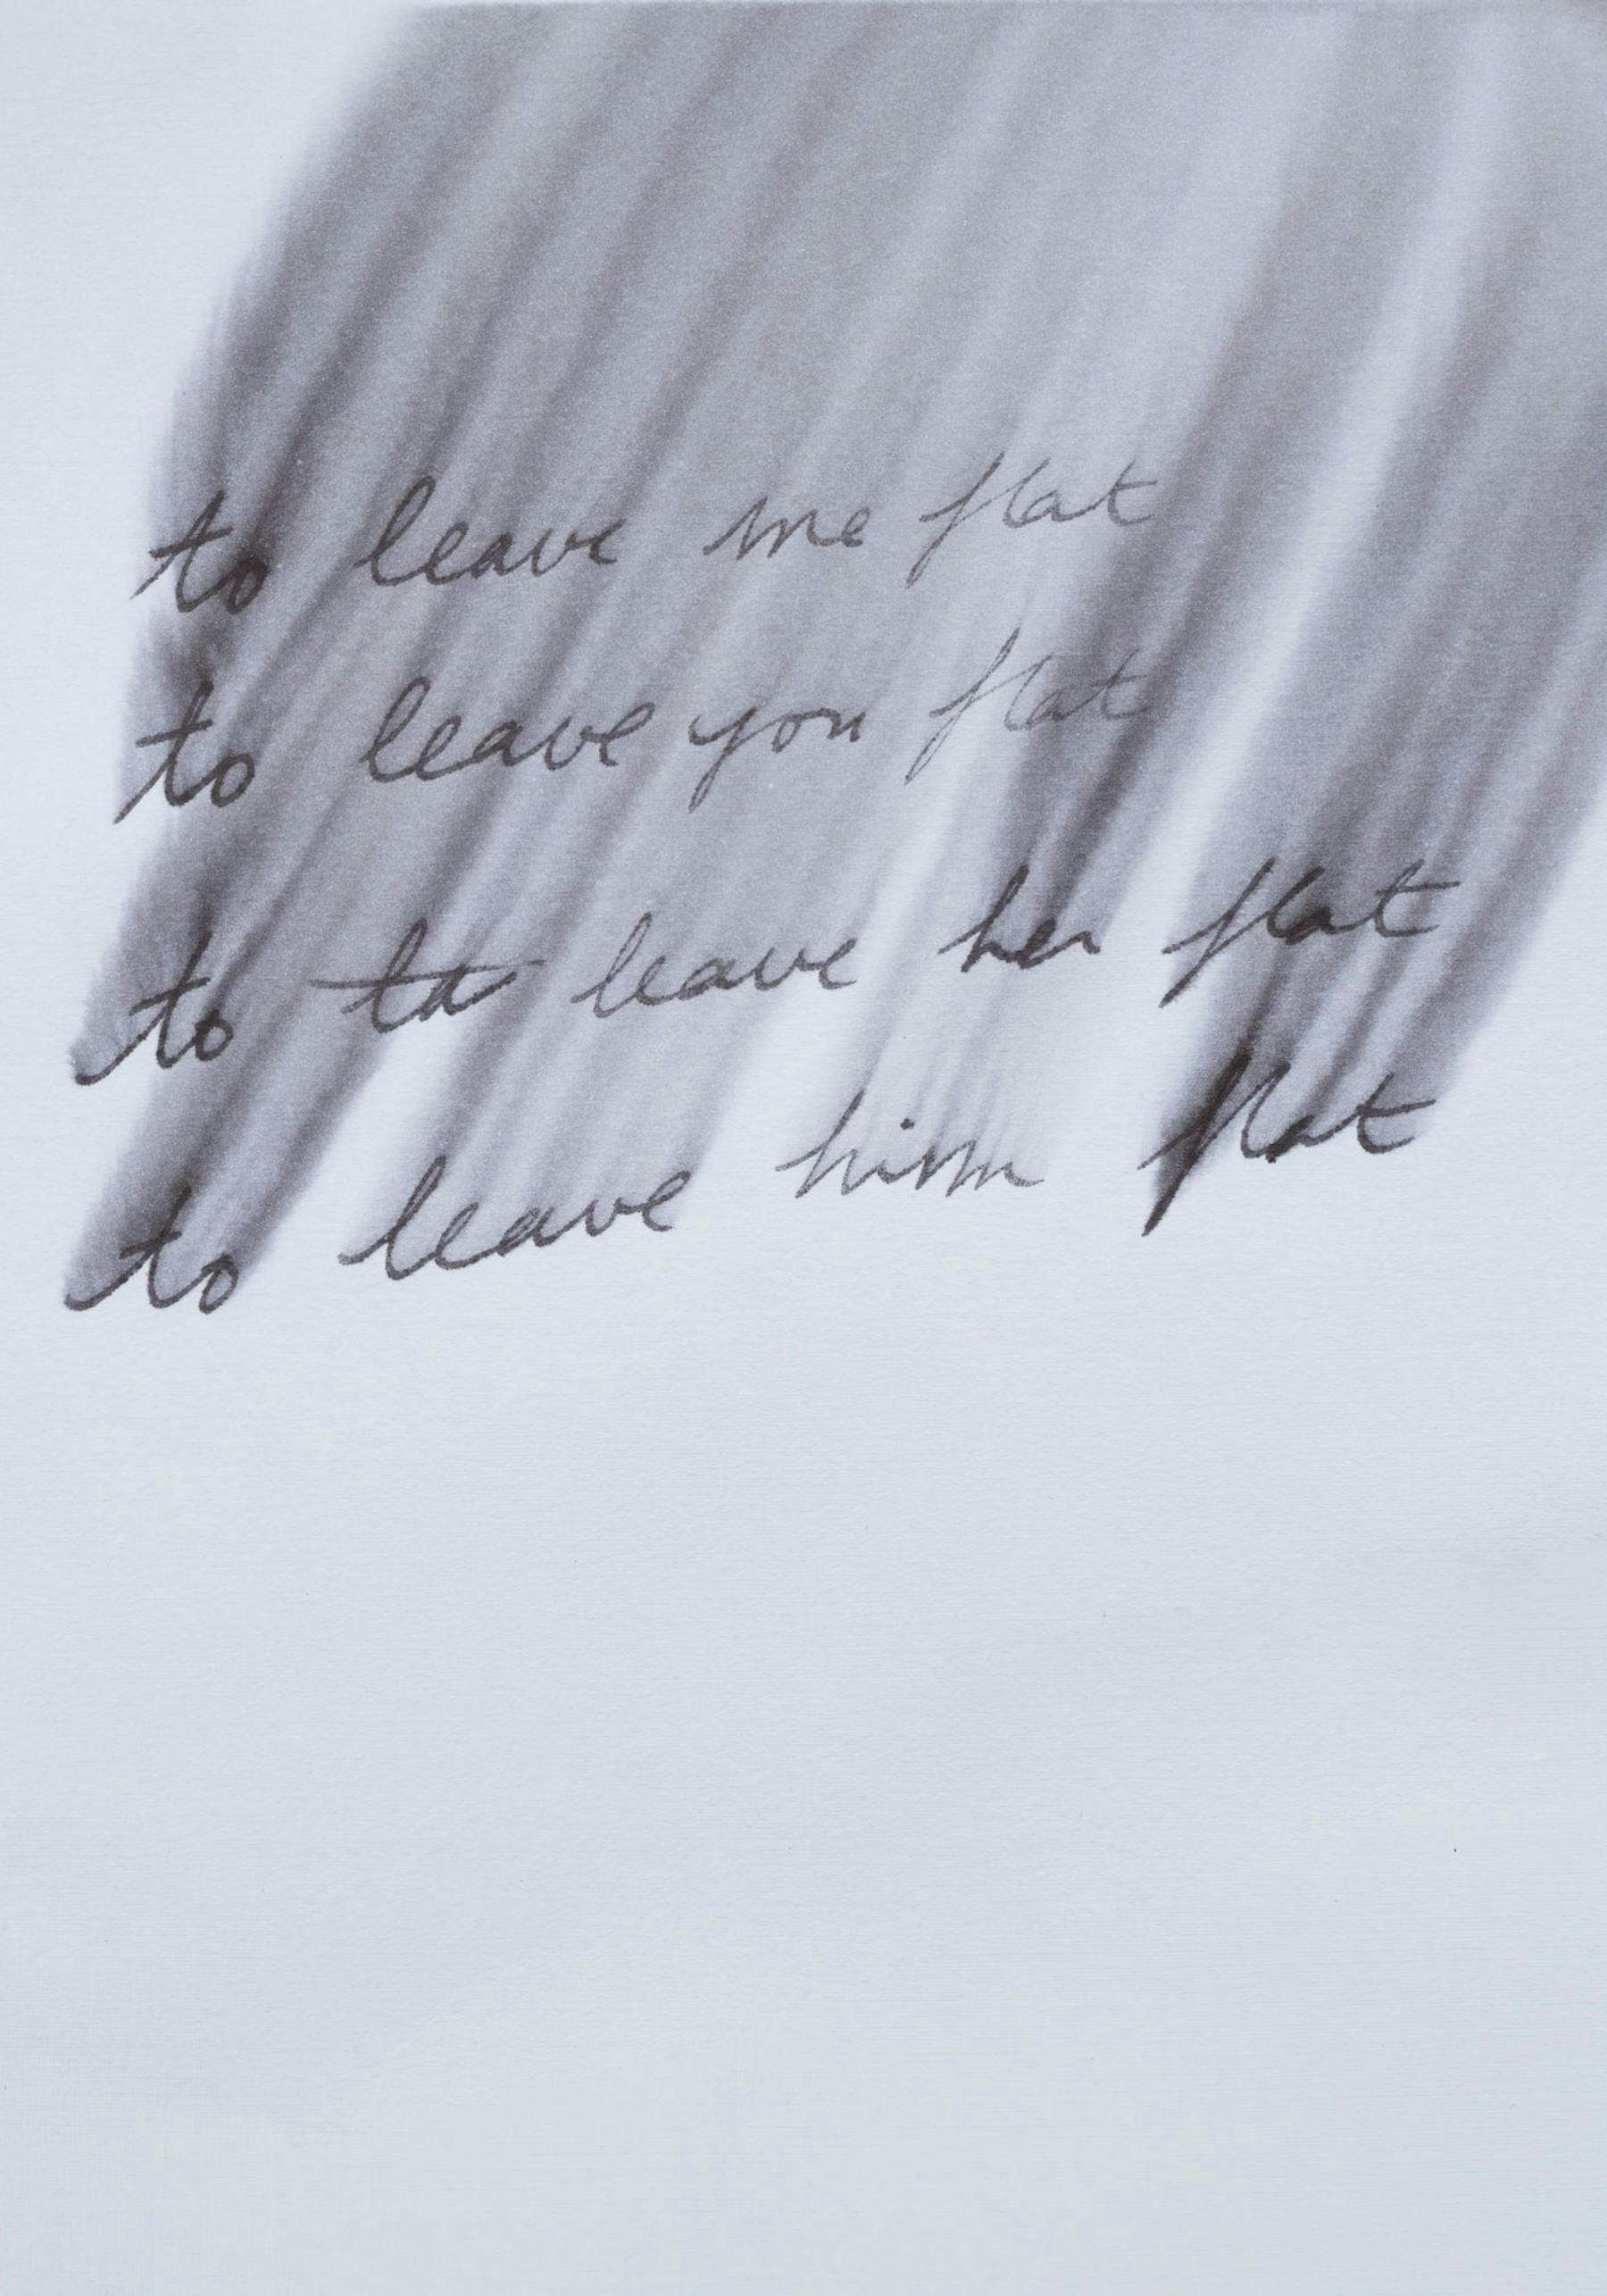 to leave me flat
to leave you flat
to ta leave her flat
to leave him flat